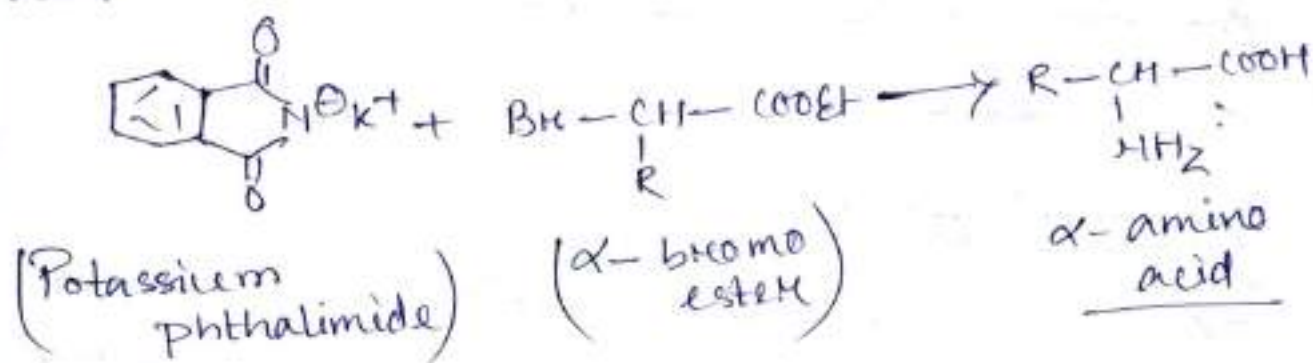 O
N⊖K+ + Br-CH-COOEt → R-CH-COOH
O
R
NH2
(Potassium phthalimide)
(α-bromo ester)
α-amino acid